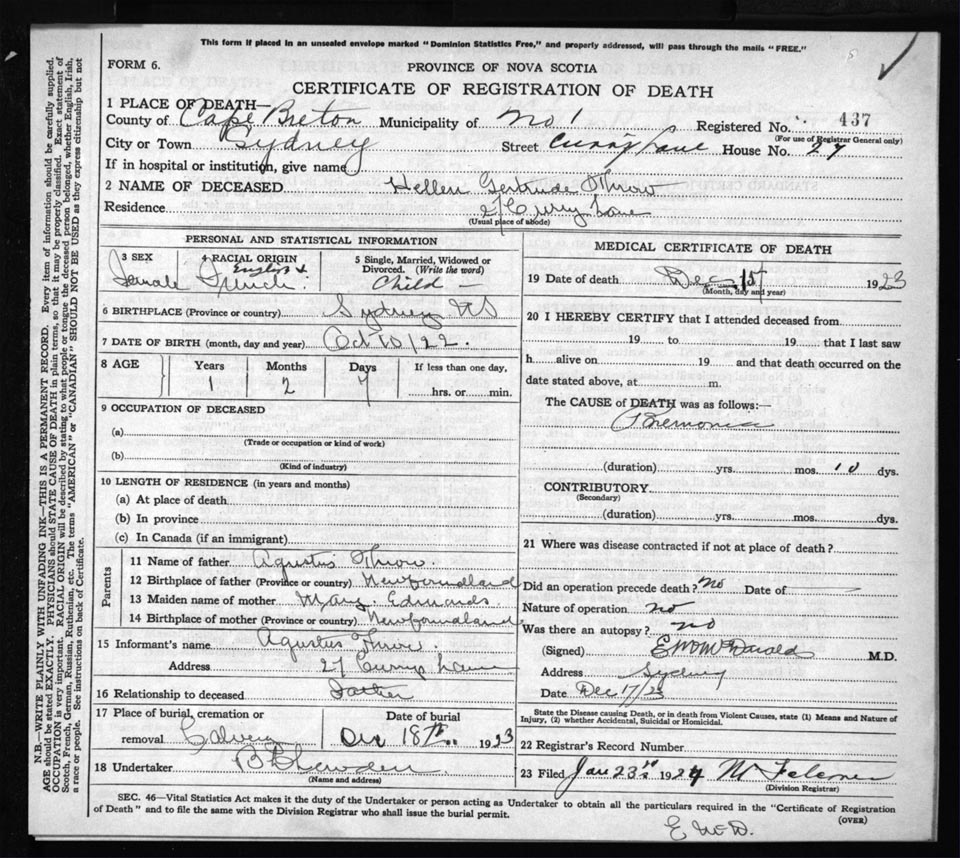 This form if placed in an unsealed envelope marked "Dominion Statistics Free," and properly addressed, will pass through the mails "FREE."
FORM 6.
PROVINCE OF NOVA SCOTIA
CERTIFICATE OF REGISTRATION OF DEATH
1 PLACE OF DEATH—
County of Cape Breton Municipality of No 1 Registered No. 437
(For use of Registrar General only)
City or Town Sydney Street Curry Lane House No. 27
If in hospital or institution, give name
2 NAME OF DECEASED Hellen Gertrude Throw
Residence 27 Curry Lane
(Usual place of abode)
PERSONAL AND STATISTICAL INFORMATION
3 SEX Female
4 RACIAL ORIGIN English & French
5 Single, Married, Widowed or Divorced. (Write the word) Child —
6 BIRTHPLACE (Province or country) Sydney NS
7 DATE OF BIRTH (month, day and year) Oct 10/22.
8 AGE Years 1 Months 2 Days 7 If less than one day, hrs. or min.
9 OCCUPATION OF DECEASED
(a)
(Trade or occupation or kind of work)
(b)
(Kind of industry)
10 LENGTH OF RESIDENCE (in years and months)
(a) At place of death
(b) In province
(c) In Canada (if an immigrant)
Parents
11 Name of father Agustus Throw.
12 Birthplace of father (Province or country) Newfoundland
13 Maiden name of mother Mary Edmunds
14 Birthplace of mother (Province or country) Newfoundland
15 Informant's name Agustus Throw.
Address 27 Curry Lane
16 Relationship to deceased Father
17 Place of burial, cremation or removal Calvery
Date of burial Dec 18th 1923
18 Undertaker
(Name and address)
MEDICAL CERTIFICATE OF DEATH
19 Date of death Dec 15 1923
(Month, day and year)
20 I HEREBY CERTIFY that I attended deceased from
19 to 19 that I last saw
h alive on 19 and that death occurred on the
date stated above, at m.
The CAUSE of DEATH was as follows:—
Pnemonia
(duration) yrs. mos. 10 dys.
CONTRIBUTORY
(Secondary)
(duration) yrs. mos. dys.
21 Where was disease contracted if not at place of death?
Did an operation precede death? No Date of —
Nature of operation no
Was there an autopsy? no
(Signed) M.D.
Address Sydney
Date Dec 17/23
State the Disease causing Death, or in death from Violent Causes, state (1) Means and Nature of
Injury, (2) whether Accidental, Suicidal or Homicidal.
22 Registrar's Record Number
23 Filed Jan 23rd 1924
(Division Registrar)
SEC. 46—Vital Statistics Act makes it the duty of the Undertaker or person acting as Undertaker to obtain all the particulars required in the "Certificate of Registration
of Death" and to file the same with the Division Registrar who shall issue the burial permit.
(OVER)
N.B.—WRITE PLAINLY WITH UNFADING INK—THIS IS A PERMANENT RECORD. Every item of information should be carefully supplied.
AGE should be stated EXACTLY. PHYSICIANS should STATE CAUSE OF DEATH in plain terms, so that it may be properly classified. Exact statement of
OCCUPATION is very important. RACIAL ORIGIN will be described by stating to what people or tongue the deceased person belonged, whether English, Irish,
Scotch, French, German, Russian, Ruthenian, etc. The terms "AMERICAN" or "CANADIAN" SHOULD NOT BE USED as they express citizenship but not
a race or people. See instructions on back of Certificate.